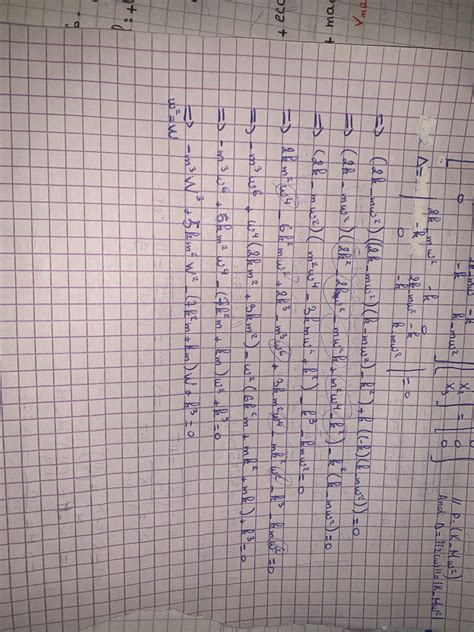 + ecc
+ ma
V ma
2k-mω² -k
-k k-mω²
X₂ = 0
X₃ 0
// P = (K - Mω²)
And
Δ = | 2k-mω² -k 0
-k 2k-mω² -k
0 -k k-mω² | = 0
⇒ (2k-mω²)((2k-mω²)(k-mω²)-k²)+k(-k)(k-mω²))=0
⇒ (2k-mω²)(2k²-2kmω²-mω²k+m²ω⁴-k²)-k²(k-mω²)=0
⇒ (2k-mω²)(m²ω⁴-3kmω²+k²)-k³-kmω²=0
⇒ 2km²ω⁴-6k²mω²+2k³-m³ω⁶+3km²ω⁴-mk²ω²-k³-kmω²=0
⇒ -m³ω⁶+ω⁴(2km²+3km²)-ω²(6k²m+mk²+mk)+k³=0
⇒ -m³ω⁶+5km²ω⁴-(7k²m+km)ω²+k³=0
⇒ -m³W³+5km²W²-(7k²m+km)W+k³=0
ω²=W